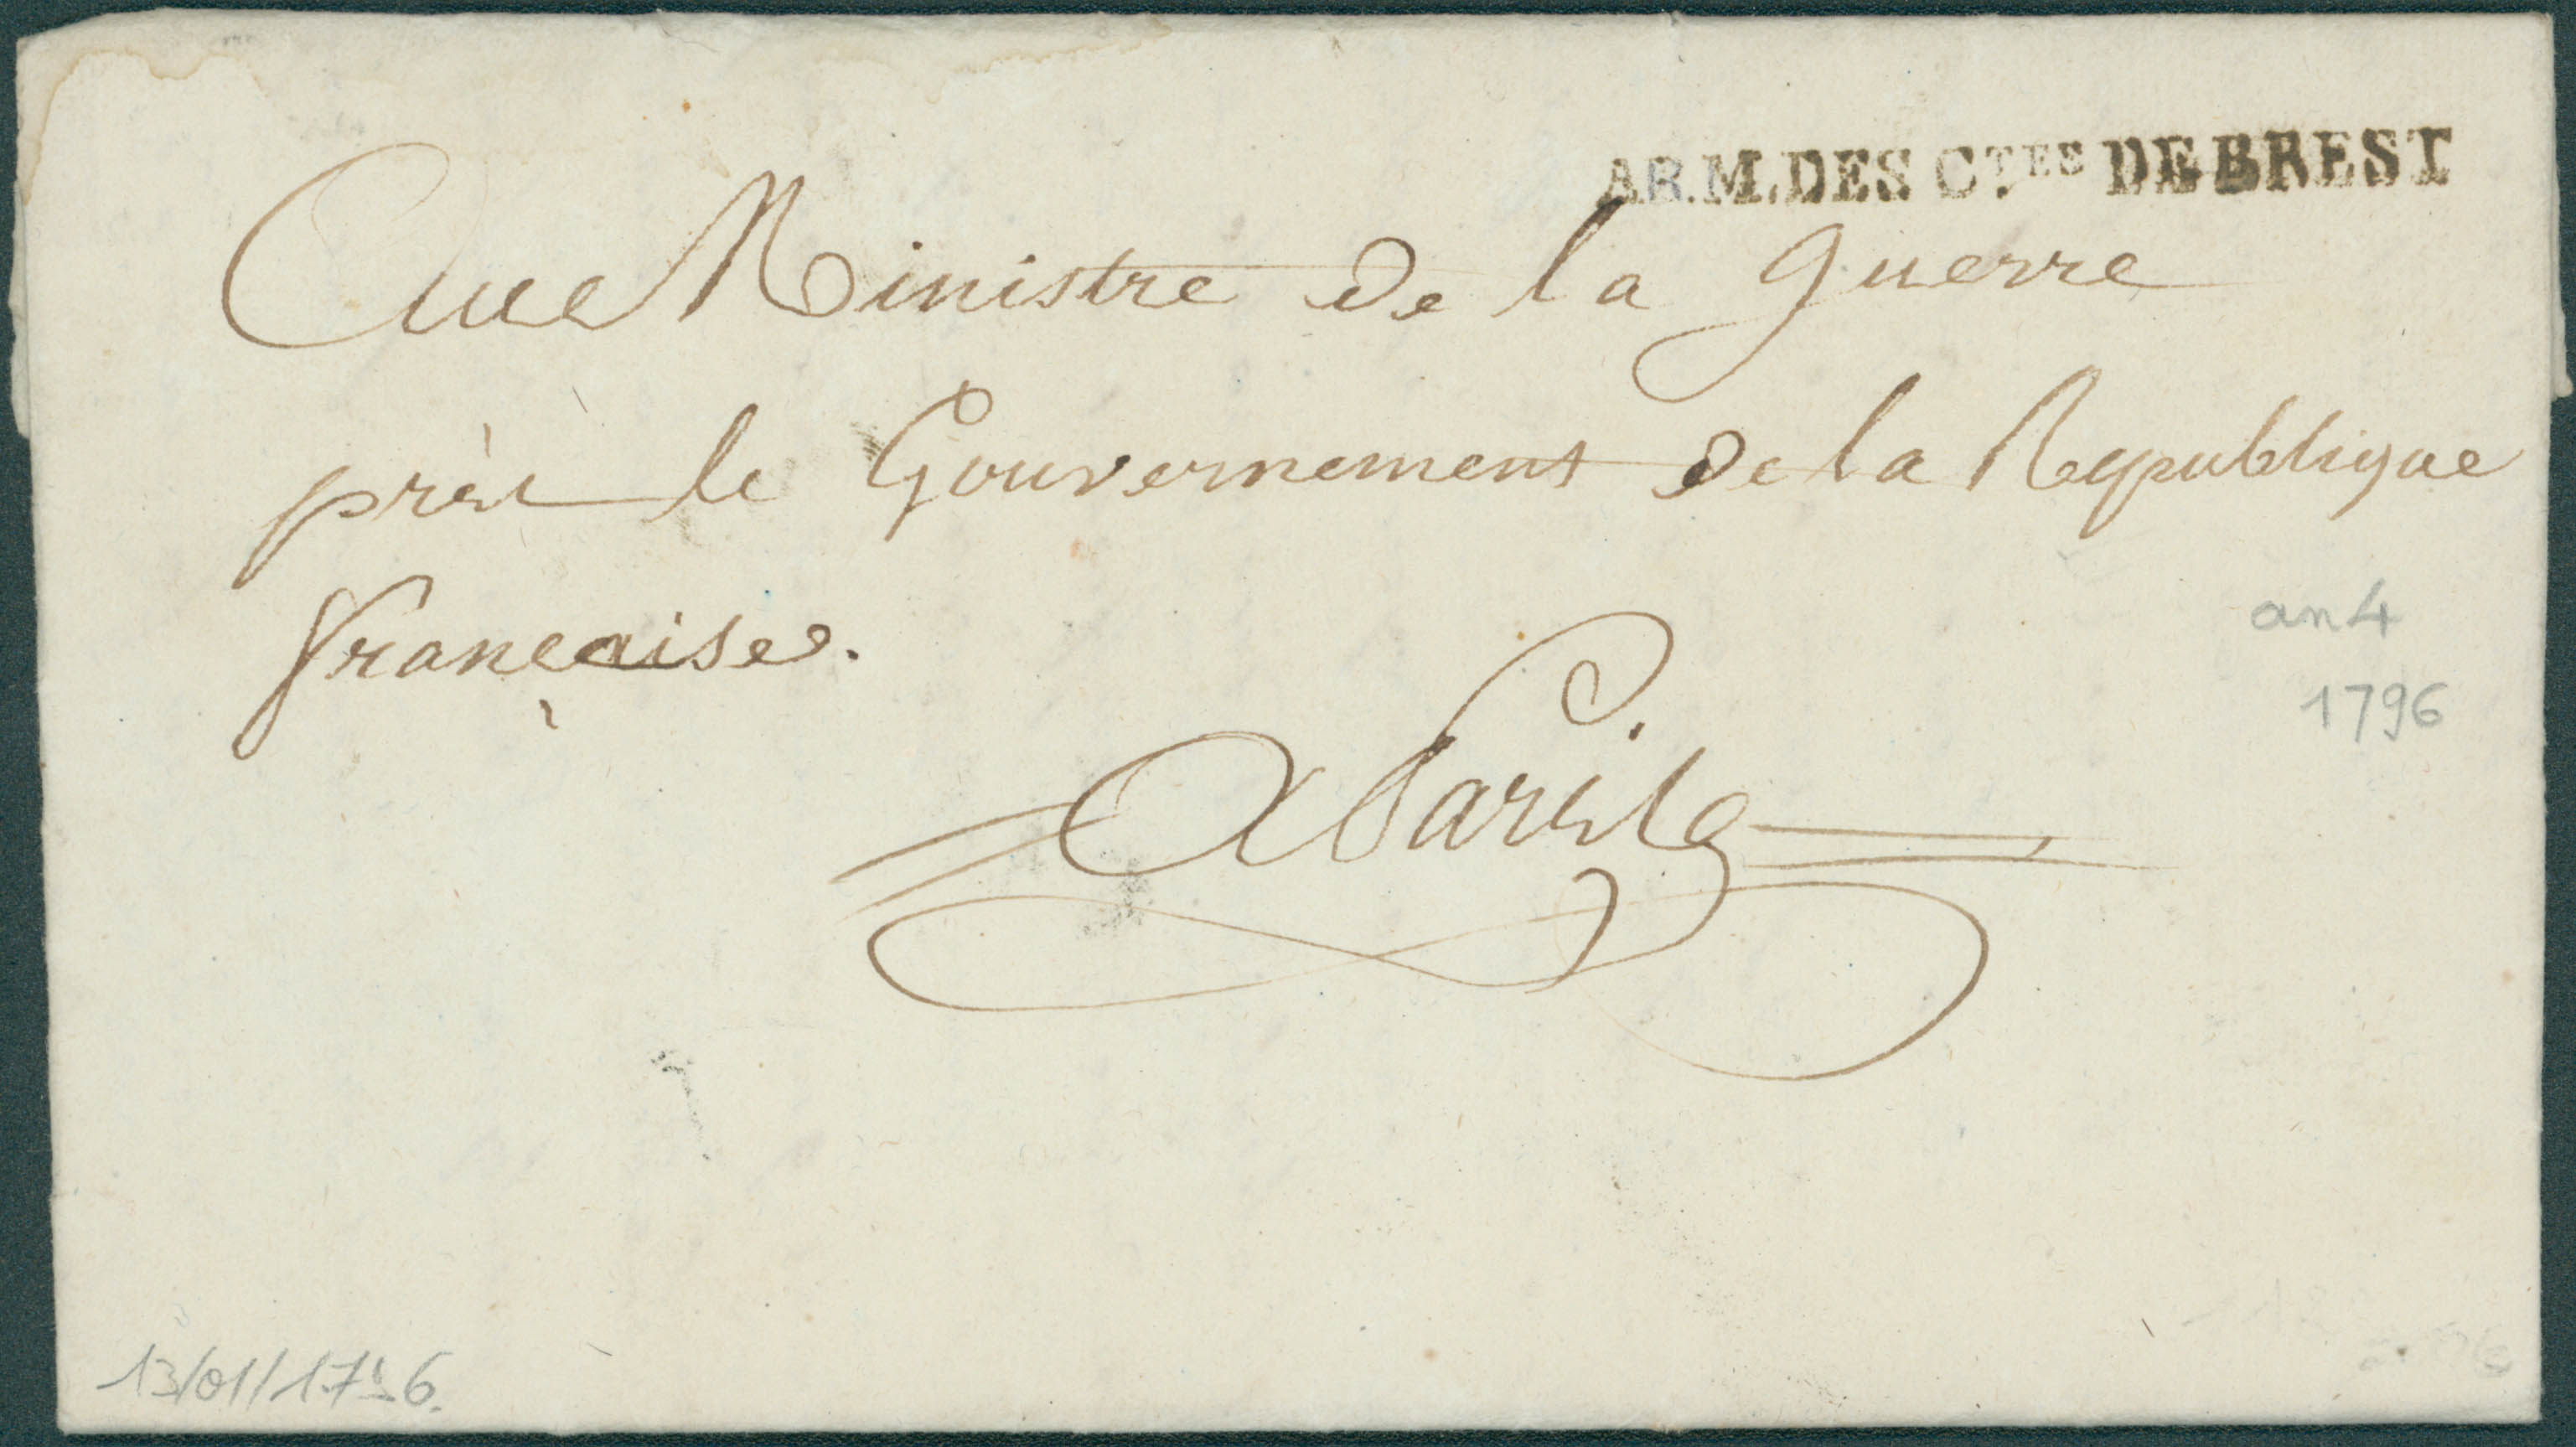 ARM. DES CTES DE BREST
Au Ministre de la Guerre
près le Gouvernement de la Republique
française.
an 4
1796
A Paris
13/01/1796.